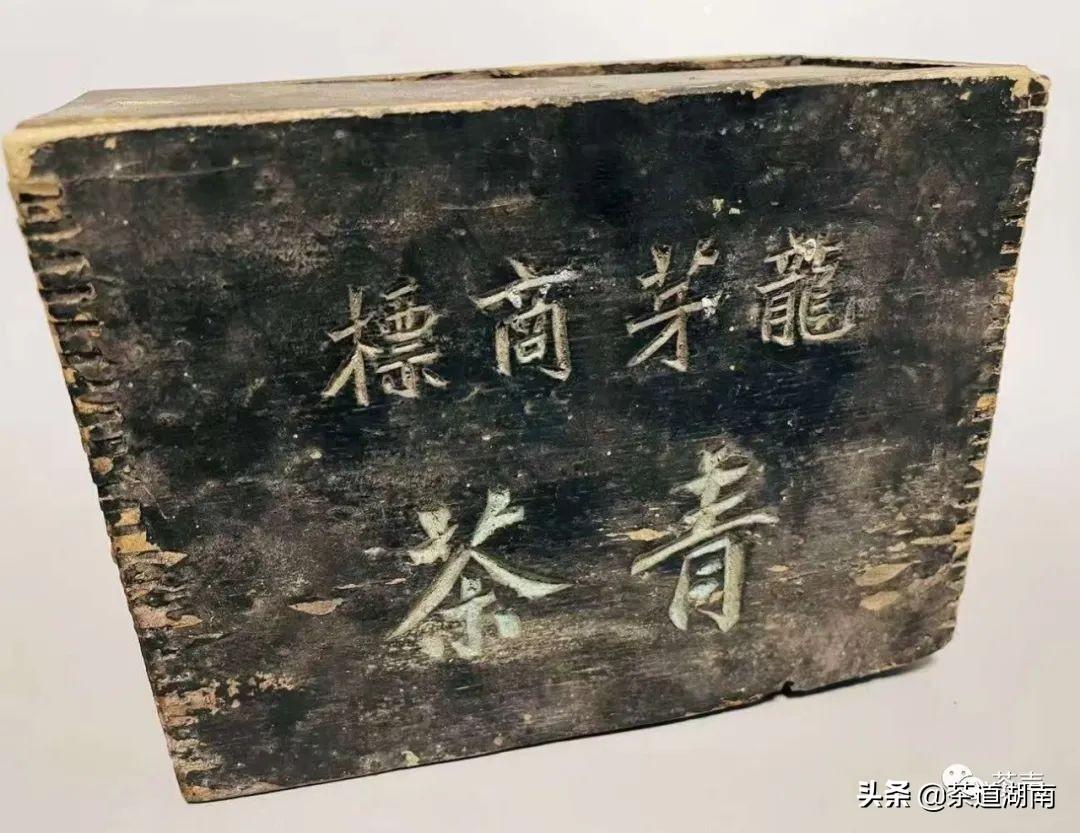 龍芽商標
青茶
茶青
头条 @茶道湖南